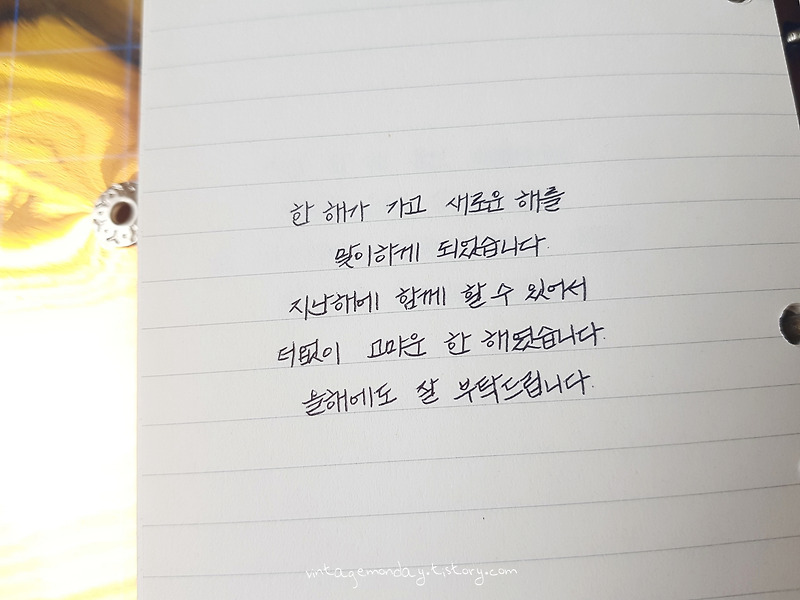 한 해가 가고 새로운 해를
맞이하게 되었습니다.
지난해에 함께 할 수 있어서
더없이 고마운 한 해였습니다.
올해에도 잘 부탁드립니다.
vintagemonday.tistory.com